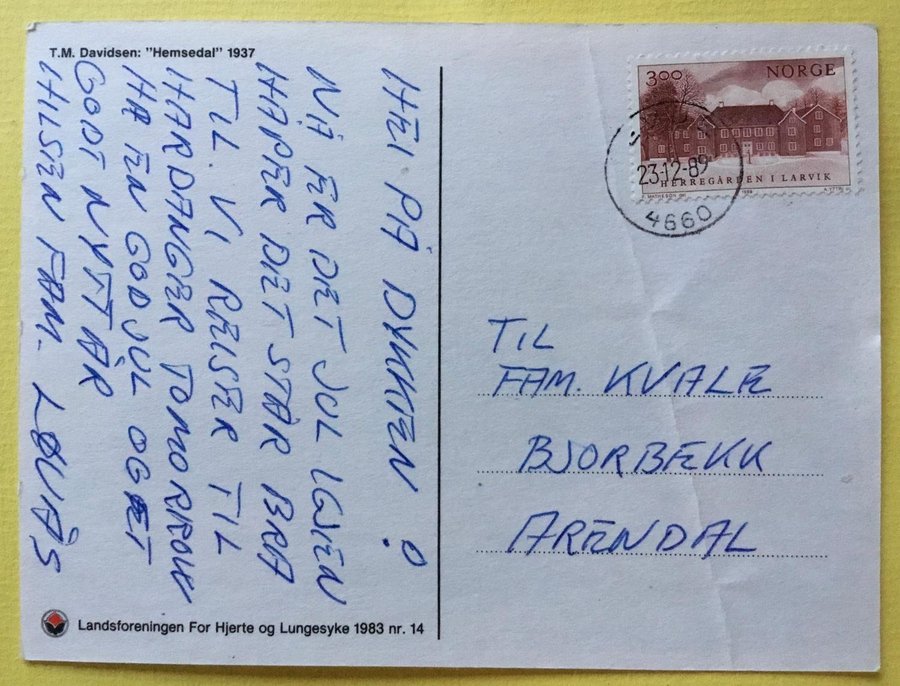 T.M. Davidsen: "Hemsedal" 1937
HEI PÅ DYKKEN!
NÅ ER DET JUL IGJEN
HÅPER DET STÅR BRA
TIL. VI REISER TIL
HARDANGER TOMORROW
HA EN GOD JUL OG ET
GODT NYTT ÅR
HILSEN FAM. LØVÅS
3.00 NORGE
HERREGÅRDEN I LARVIK
23.12.89
4660
TIL
FAM. KVALE
BJORBEKK
ARENDAL
Landsforeningen For Hjerte og Lungesyke 1983 nr. 14